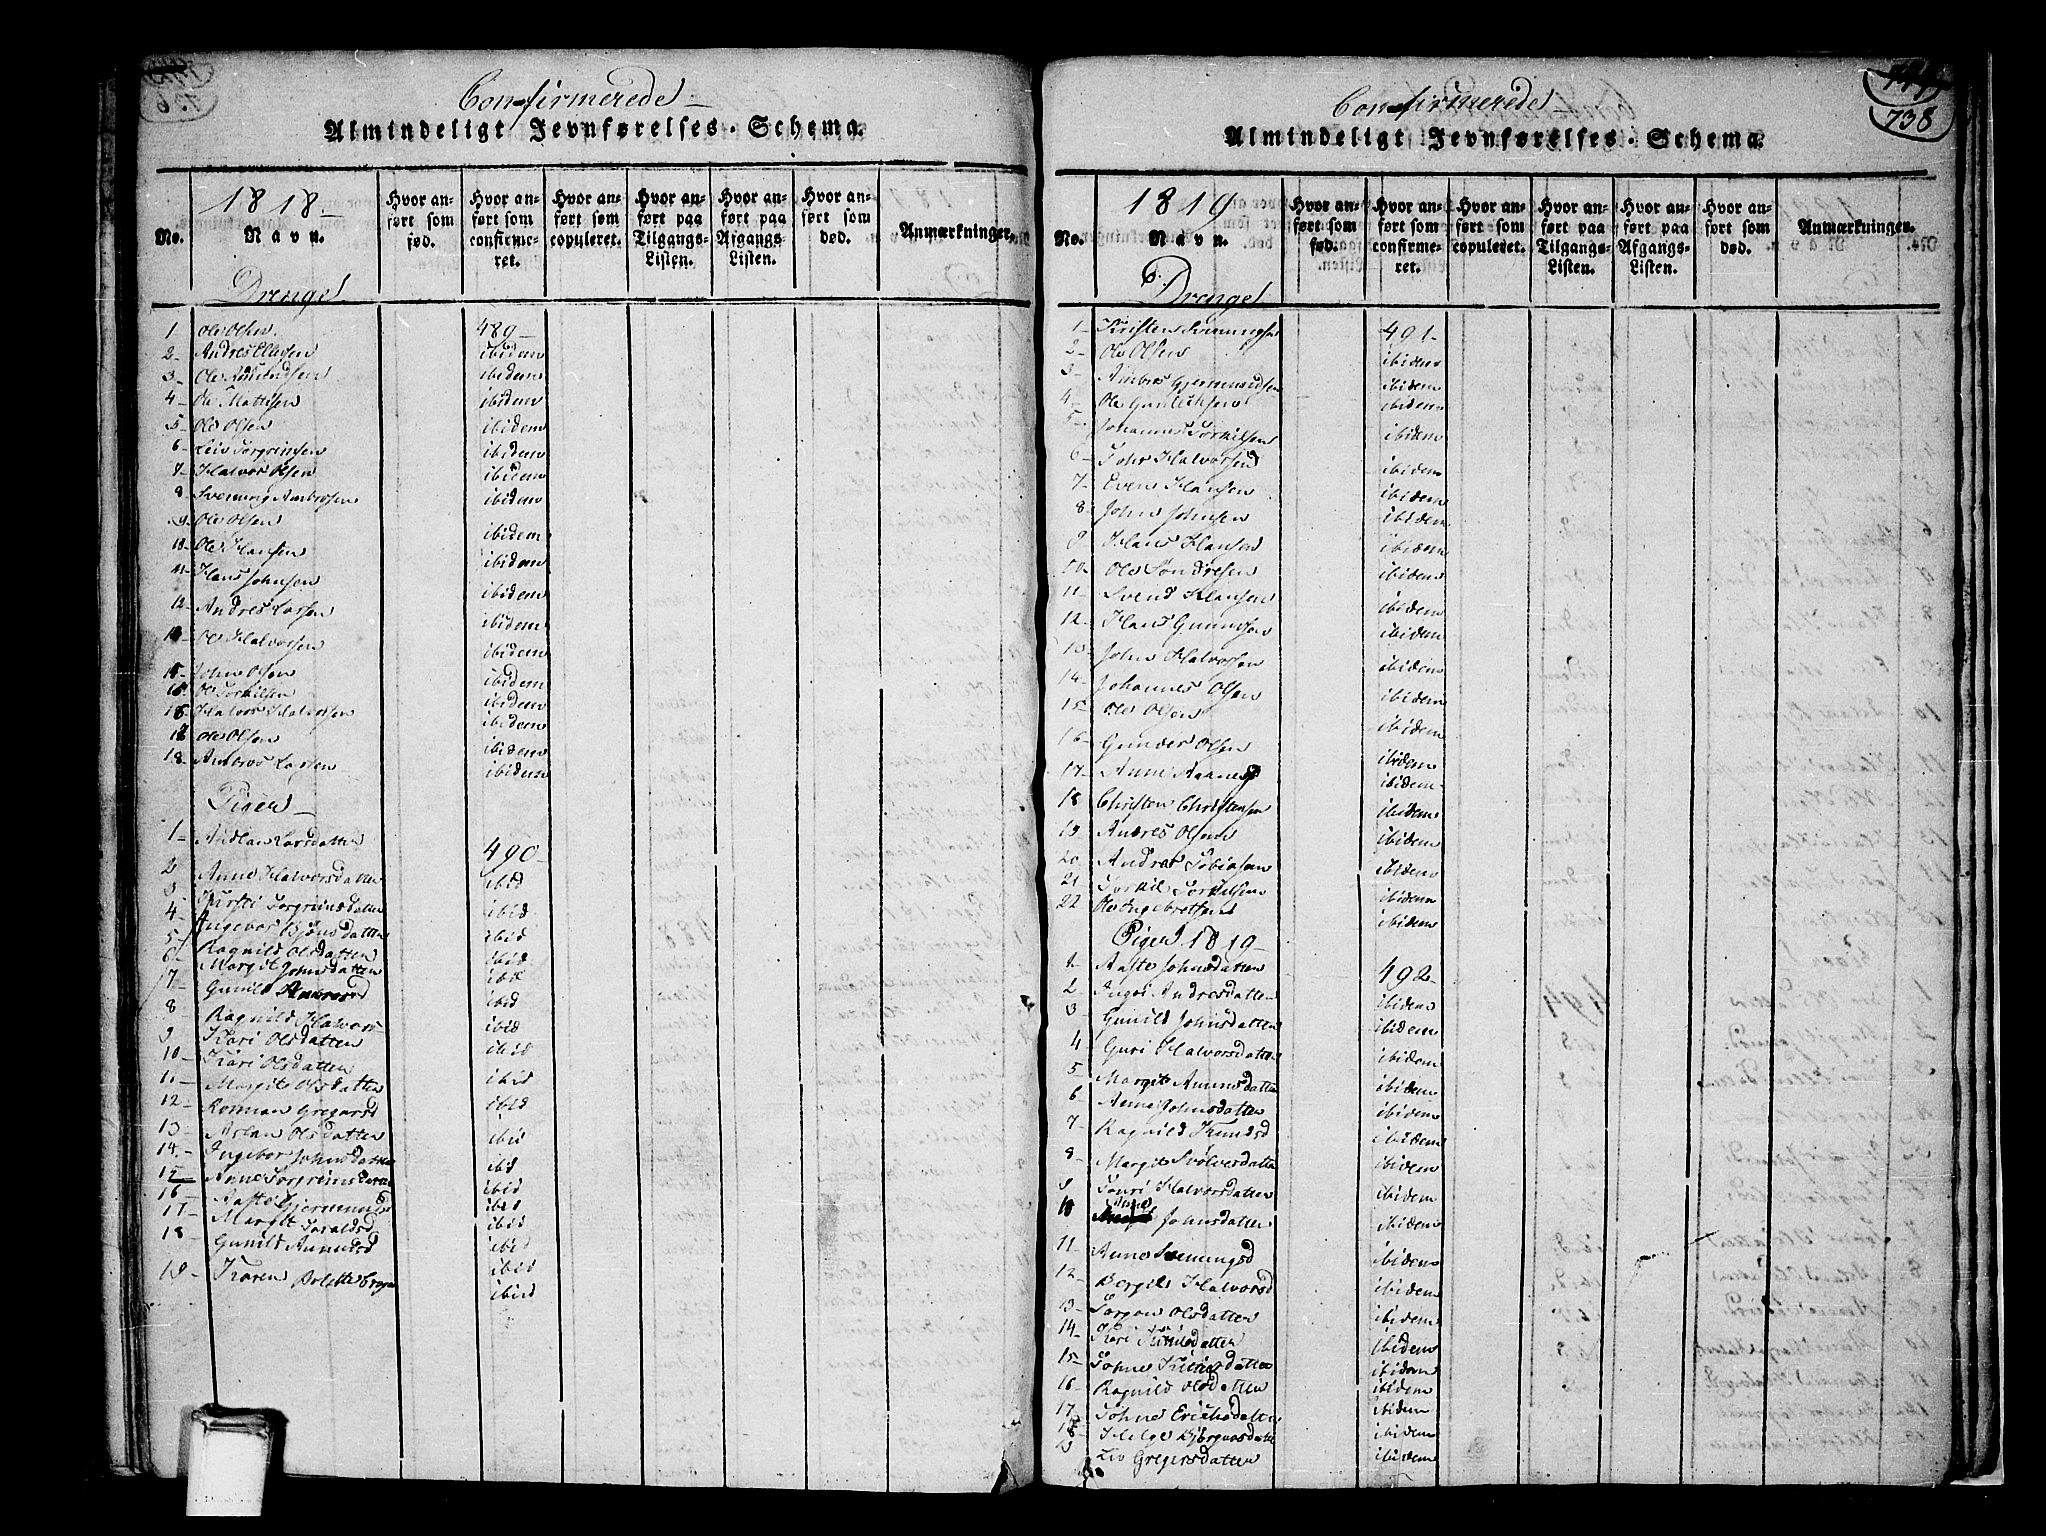 Confirmerede
Almindeligt Jevnførelses-Schema.
No.
1818
Navn.
Hvor anført som fød.
Hvor anført som confirmeret.
Hvor anført som copuleret.
Hvor anført paa Tilgangs-Listen.
Hvor anført paa Afgangs-Listen.
Hvor anført som død.
Anmærkninger.
Drenge
1 Ole Olsen 489
2 Andres Ellefsen ibidem
3 Ole Amundsen ibidem
4 Ole Mattisen ibidem
5 Ole Olsen ibidem
6 Leiv Torgrimsen ibidem
7 Halvor Olsen ibidem
8 Svenung Ambrosen ibidem
9 Ole Olsen ibidem
10 Ole Hansen ibidem
11 Hans Johnsen ibidem
12 Andres Larsen ibidem
Ole Halvorsen ibidem
John Olsen ibidem
Ole Torkilsen ibidem
Halvor Halvorsen ibidem
17 Ole Olsen ibidem
18 Ambros Larsen ibidem
Piger
1 Larsdatter 490
2 Anne Halvorsdatter ibid
3 Kirsti Torgrimsdatter ibid
4 Ingebor datter ibid
5 Ragnild Olsdatter ibid
6 Margit Johnsdatter ibid
7 Gunild ibid
8 Ragnild Halvors ibid
9 Kari Olsdatter ibid
10 Kari Olsdatter ibid
11 Margite Olsdatter ibid
12 Ronnau Gregarsd ibid
13 Aslau Olsdatter ibid
14 Ingebor Johnsdatter ibid
15 Anne Torgrims ibid
16 Aaste Gjermunds ibid
17 Margit Taraldsd ibid
18 Gunild ibid
19 Karen Bolette ibid
738
Confirmerede
Almindeligt Jevnførelses-Schema.
No.
1819
Navn.
Hvor anført som fød.
Hvor anført som confirmeret.
Hvor anført som copuleret.
Hvor anført paa Tilgangs-Listen.
Hvor anført paa Afgangs-Listen.
Hvor anført som død.
Anmærkninger.
Drenge
1 Kristen Svenungsen 491
2 Ole Olsen ibidem
3 Ambros Gjermundsen ibidem
4 Ole Gunleiksen ibidem
5 Johannes Torkilsen ibidem
6 Tohr Halvorsen ibidem
7 Even Hansen ibidem
8 John Johnsen ibidem
9 Hans Hansen ibidem
10 Ole Søndresen ibidem
11 Svend Hansen ibidem
12 Hans Gunnersen ibidem
13 John Halvorsen ibidem
14 Johannes Olsen ibidem
15 Ole Olsen ibidem
16 Gunder Olsen ibidem
17 Anne ibidem
18 Christen Christensen ibidem
19 Andres Olsen ibidem
20 Andres Tobiasen ibidem
21 Torkil Torkilsen ibidem
22 Ole Ingebretsen ibidem
Piger 1819
1 Aaste Johnsdatter 492
2 Ingri Andresdatter ibidem
3 Gunild Johnsdatter ibidem
4 Guri Halvorsdatter ibidem
5 Margit ibidem
6 Anne Johnsdatter ibidem
7 Ragnild Knudsd ibidem
8 Margit Svølversdatter ibidem
9 Touri Halvorsdatter ibidem
10 Johnsdatter ibidem
11 Anne Svenungsd ibidem
12 Bergit Halvorsd ibidem
13 Torgon Olsdatter ibidem
14 Kari datter ibidem
15 Tohne datter ibidem
16 Ragnild Olsdatter ibidem
17 Tohne Erichsdatter ibidem
18 Helge Bjørgvorsdatt ibidem
19 Liv Gregersdatter ibidem